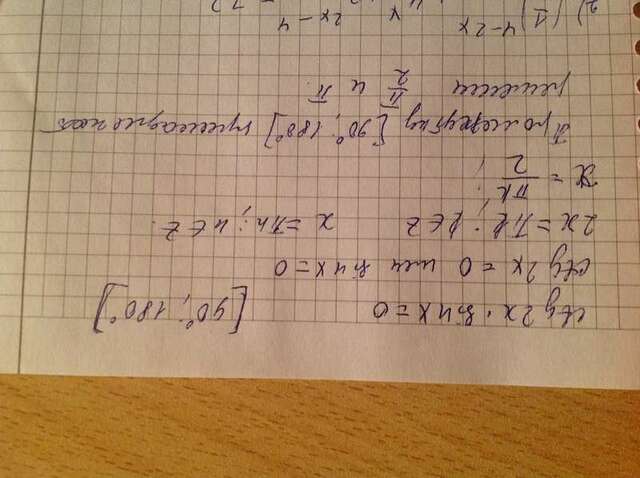 ctg 2x · sin x = 0 [90°; 180°]
ctg 2x = 0 или sin x = 0
2x = πk; k ∈ Z x = πn; n ∈ Z.
x = πk/2;
Промежутку [90°; 180°] принадлежат
решения π/2 и π.
2) (1)^4-2x 4^x 2x-4